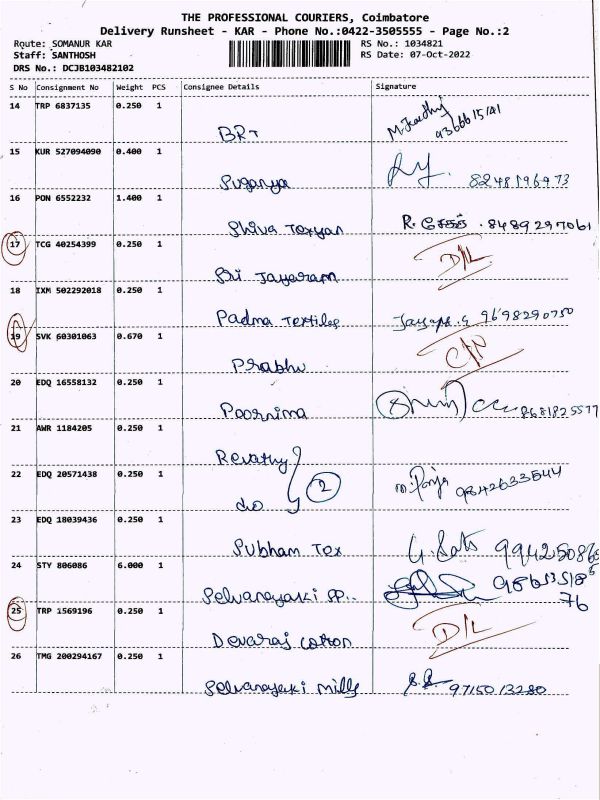 THE PROFESSIONAL COURIERS, Coimbatore
Delivery Runsheet - KAR - Phone No.:0422-3505555 - Page No.:2
Route: SOMANUR KAR RS No.: 1034821
Staff: SANTHOSH RS Date: 07-Oct-2022
DRS No.: DCJB103482102
S No Consignment No Weight PCS Consignee Details Signature
14 TRP 6837135 0.250 1
BRT
15 KUR 527094090 0.400 1
Suganya 8248196973
16 PON 6552232 1.400 1
Shiva Texyan R. சேகர் . 8489297061
17 TCG 40254399 0.250 1
Sri Jayaram D/L
18 IXM 502292018 0.250 1
Padma Textiles 9698290750
19 SVK 60301063 0.670 1
Prabhu
20 EDQ 16558132 0.250 1
Poornima 8681825577
21 AWR 1184205 0.250 1
Revathy
22 EDQ 20571438 0.250 1
do 2 9842633544
23 EDQ 18039436 0.250 1
Subham Tex
24 STY 806086 6.000 1
Selvanayaki SP..
25 TRP 1569196 0.250 1
Devaraj cotton D/L
26 TMG 200294167 0.250 1
Selvanayaki Mills 9715013280